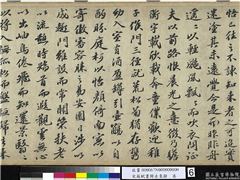 悟已往之不諫知來者之可追實
迷途其未遠覺今是而昨非舟
遙遙以輕颺風飄飄而吹衣問征
夫以前路恨晨光之熹微乃瞻
衡宇載欣載奔僮僕歡迎稚
子候門三徑就荒松菊猶存攜
幼入室有酒盈罇引壺觴以自
酌眄庭柯以怡顏倚南窗以
寄傲審容膝之易安園日涉以
成趣門雖設而常關策扶老以
流憩時矯首而遐觀雲無心
以出岫鳥倦飛而知還景翳翳
以將入撫孤松而盤桓歸去來
6